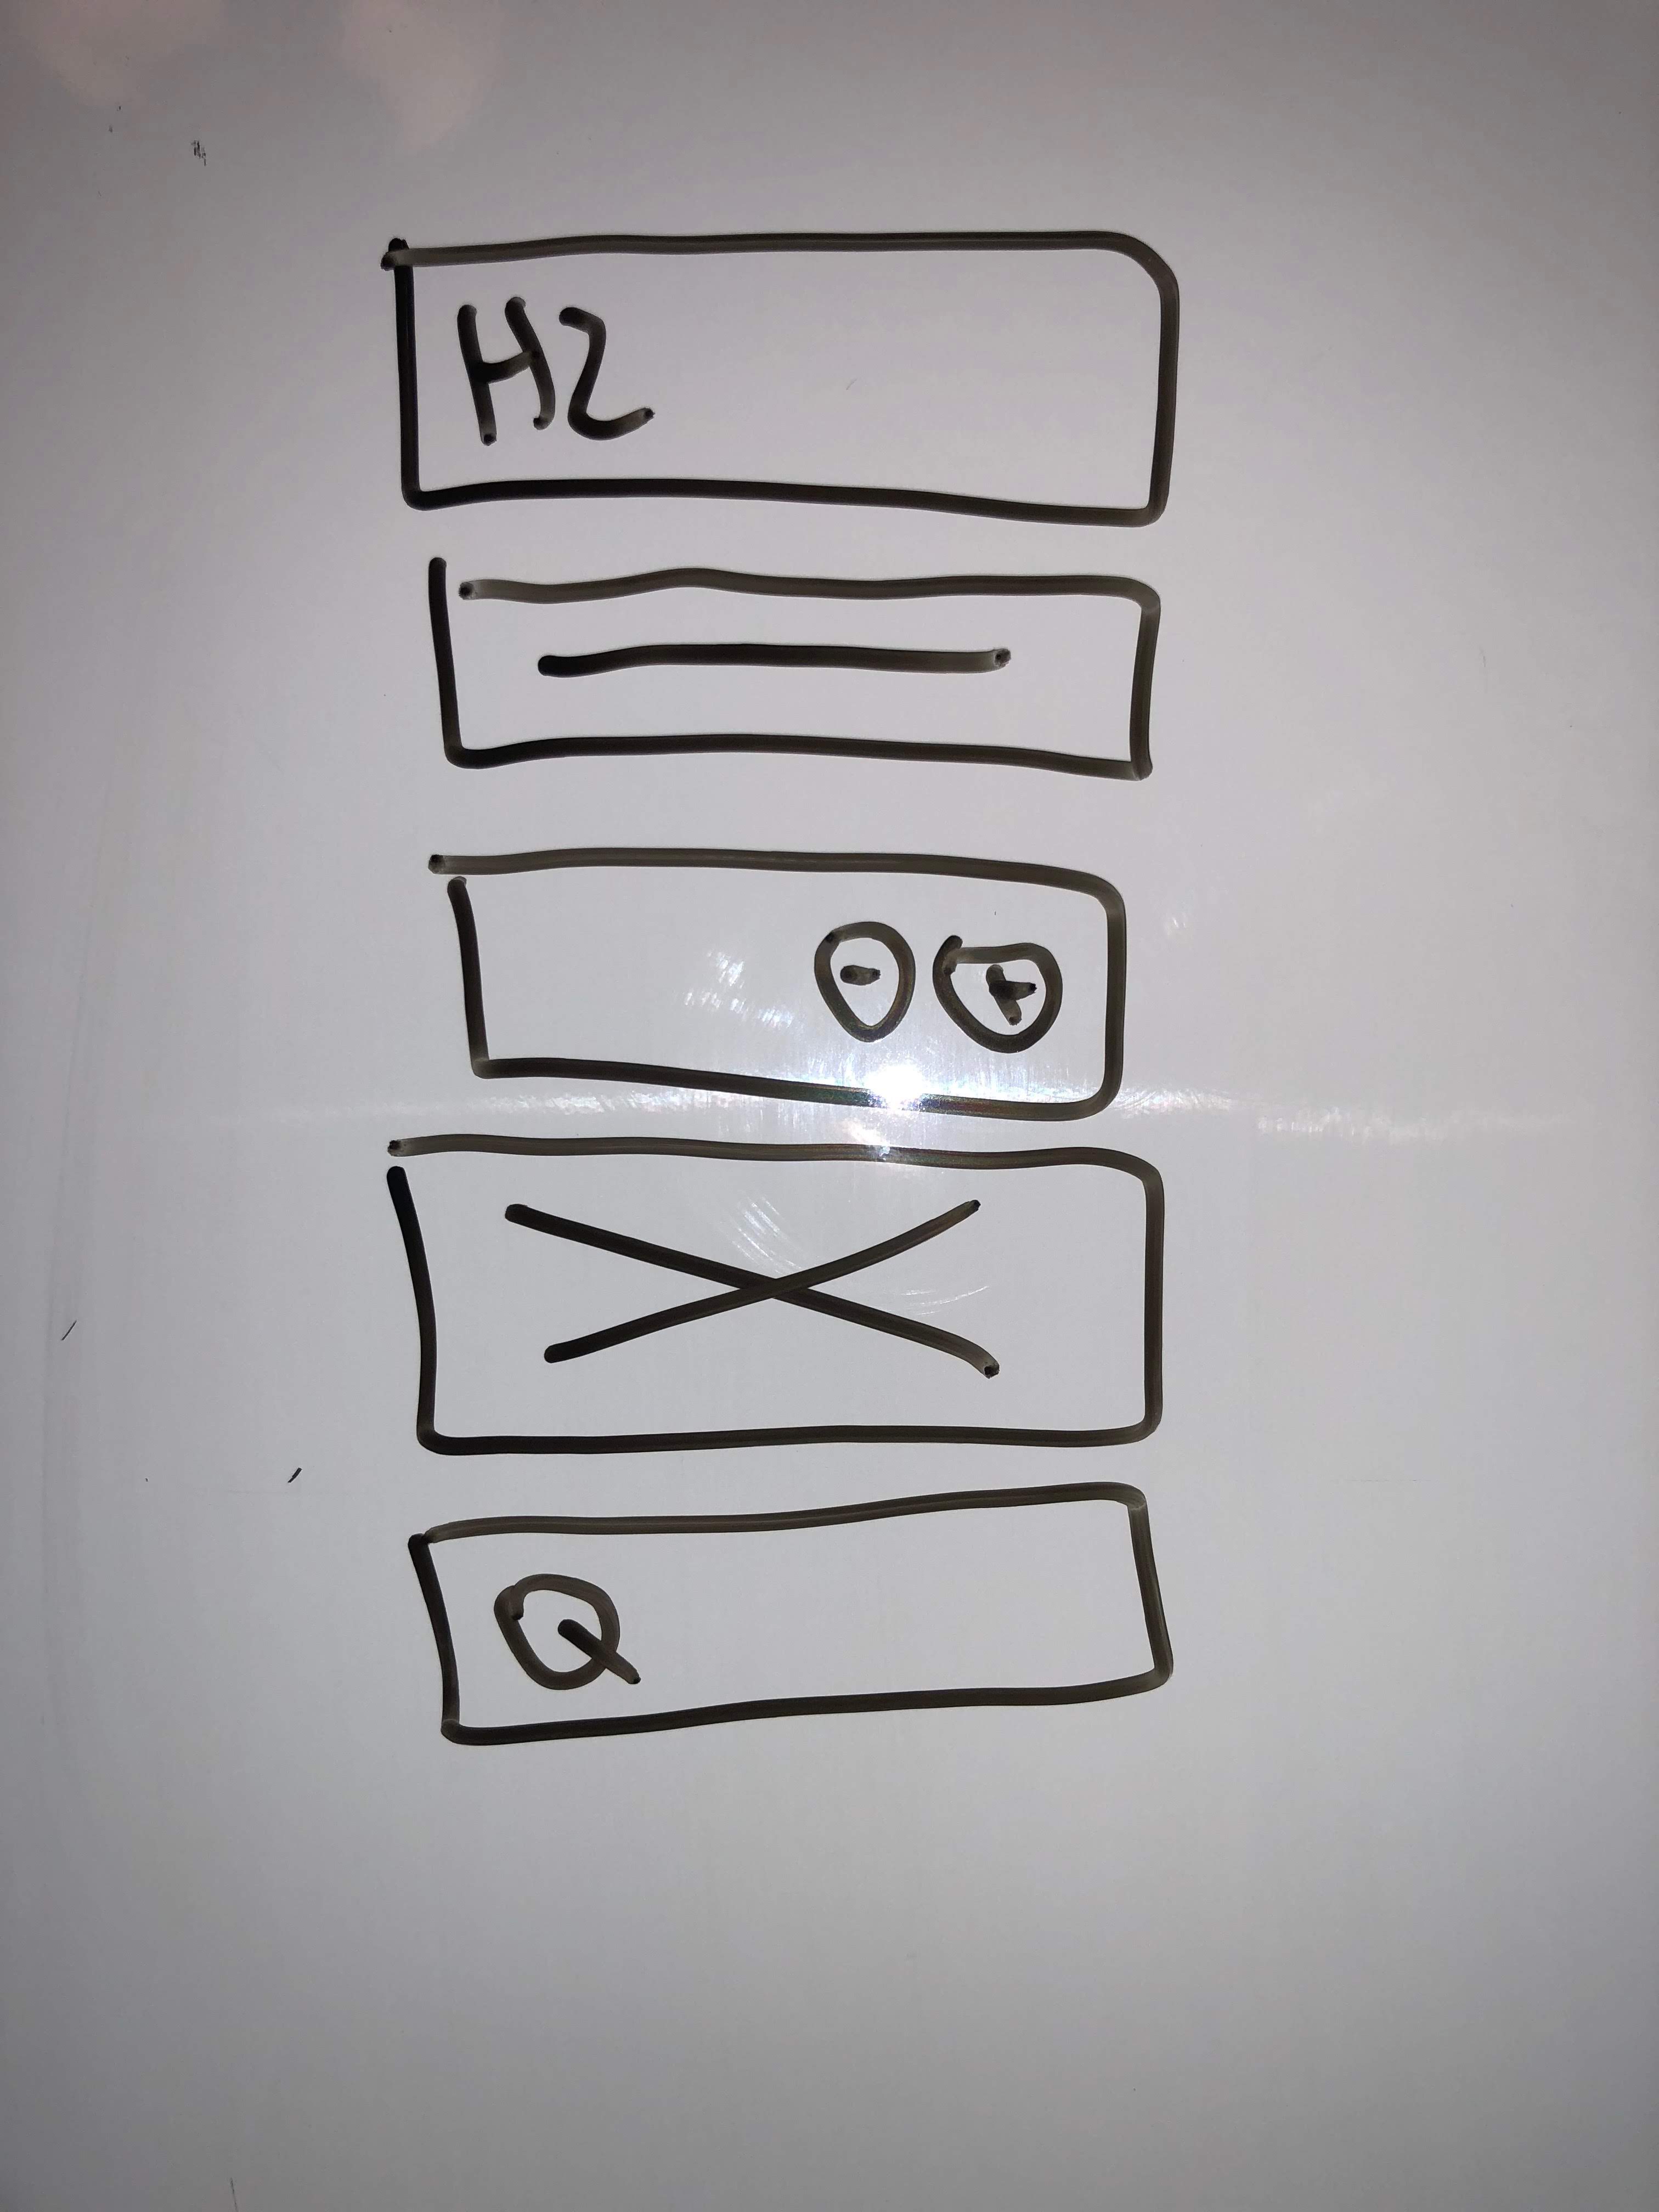 H2
- +
Q